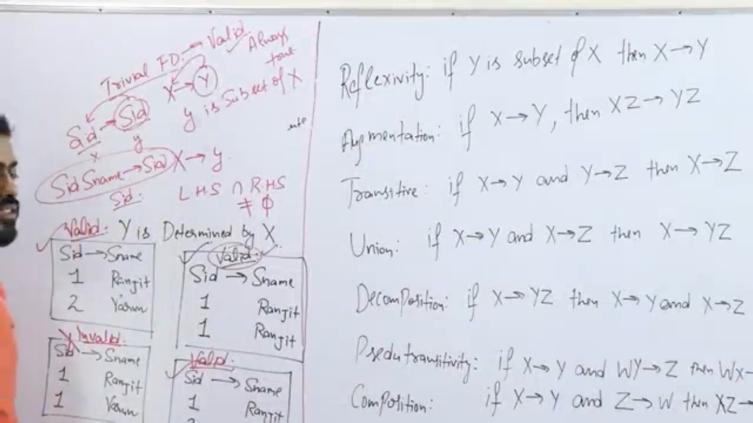 Trivial FD → Valid Always true
X → Y
Sid → Sid y is subset of X
X y
Sid Sname → Sid X → y
Sid. LHS ∩ RHS
≠ ϕ
Valid: Y is Determined by X
Sid → Sname
1 Ranjit
2 Varun
Valid
Sid → Sname
1 Ranjit
1 Ranjit
Invalid.
Sid → Sname
1 Ranjit
1 Varun
Valid.
Sid → Sname
1 Ranjit
Reflexivity: if Y is subset of X then X → Y
Augmentation: if X → Y, then XZ → YZ
Transitive: if X → Y and Y → Z then X → Z
Union: if X → Y and X → Z then X → YZ
Decomposition: if X → YZ then X → Y and X → Z
Psedutransitivity: if X → Y and WY → Z then WX →
Composition: if X → Y and Z → W then XZ →